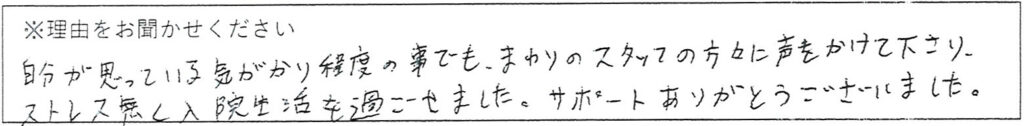 ※理由をお聞かせください
自分が思っている気がかり程度の事でも、まわりのスタッフの方々に声をかけて下さり、
ストレス無く入院生活を過ごせました。サポートありがとうございました。